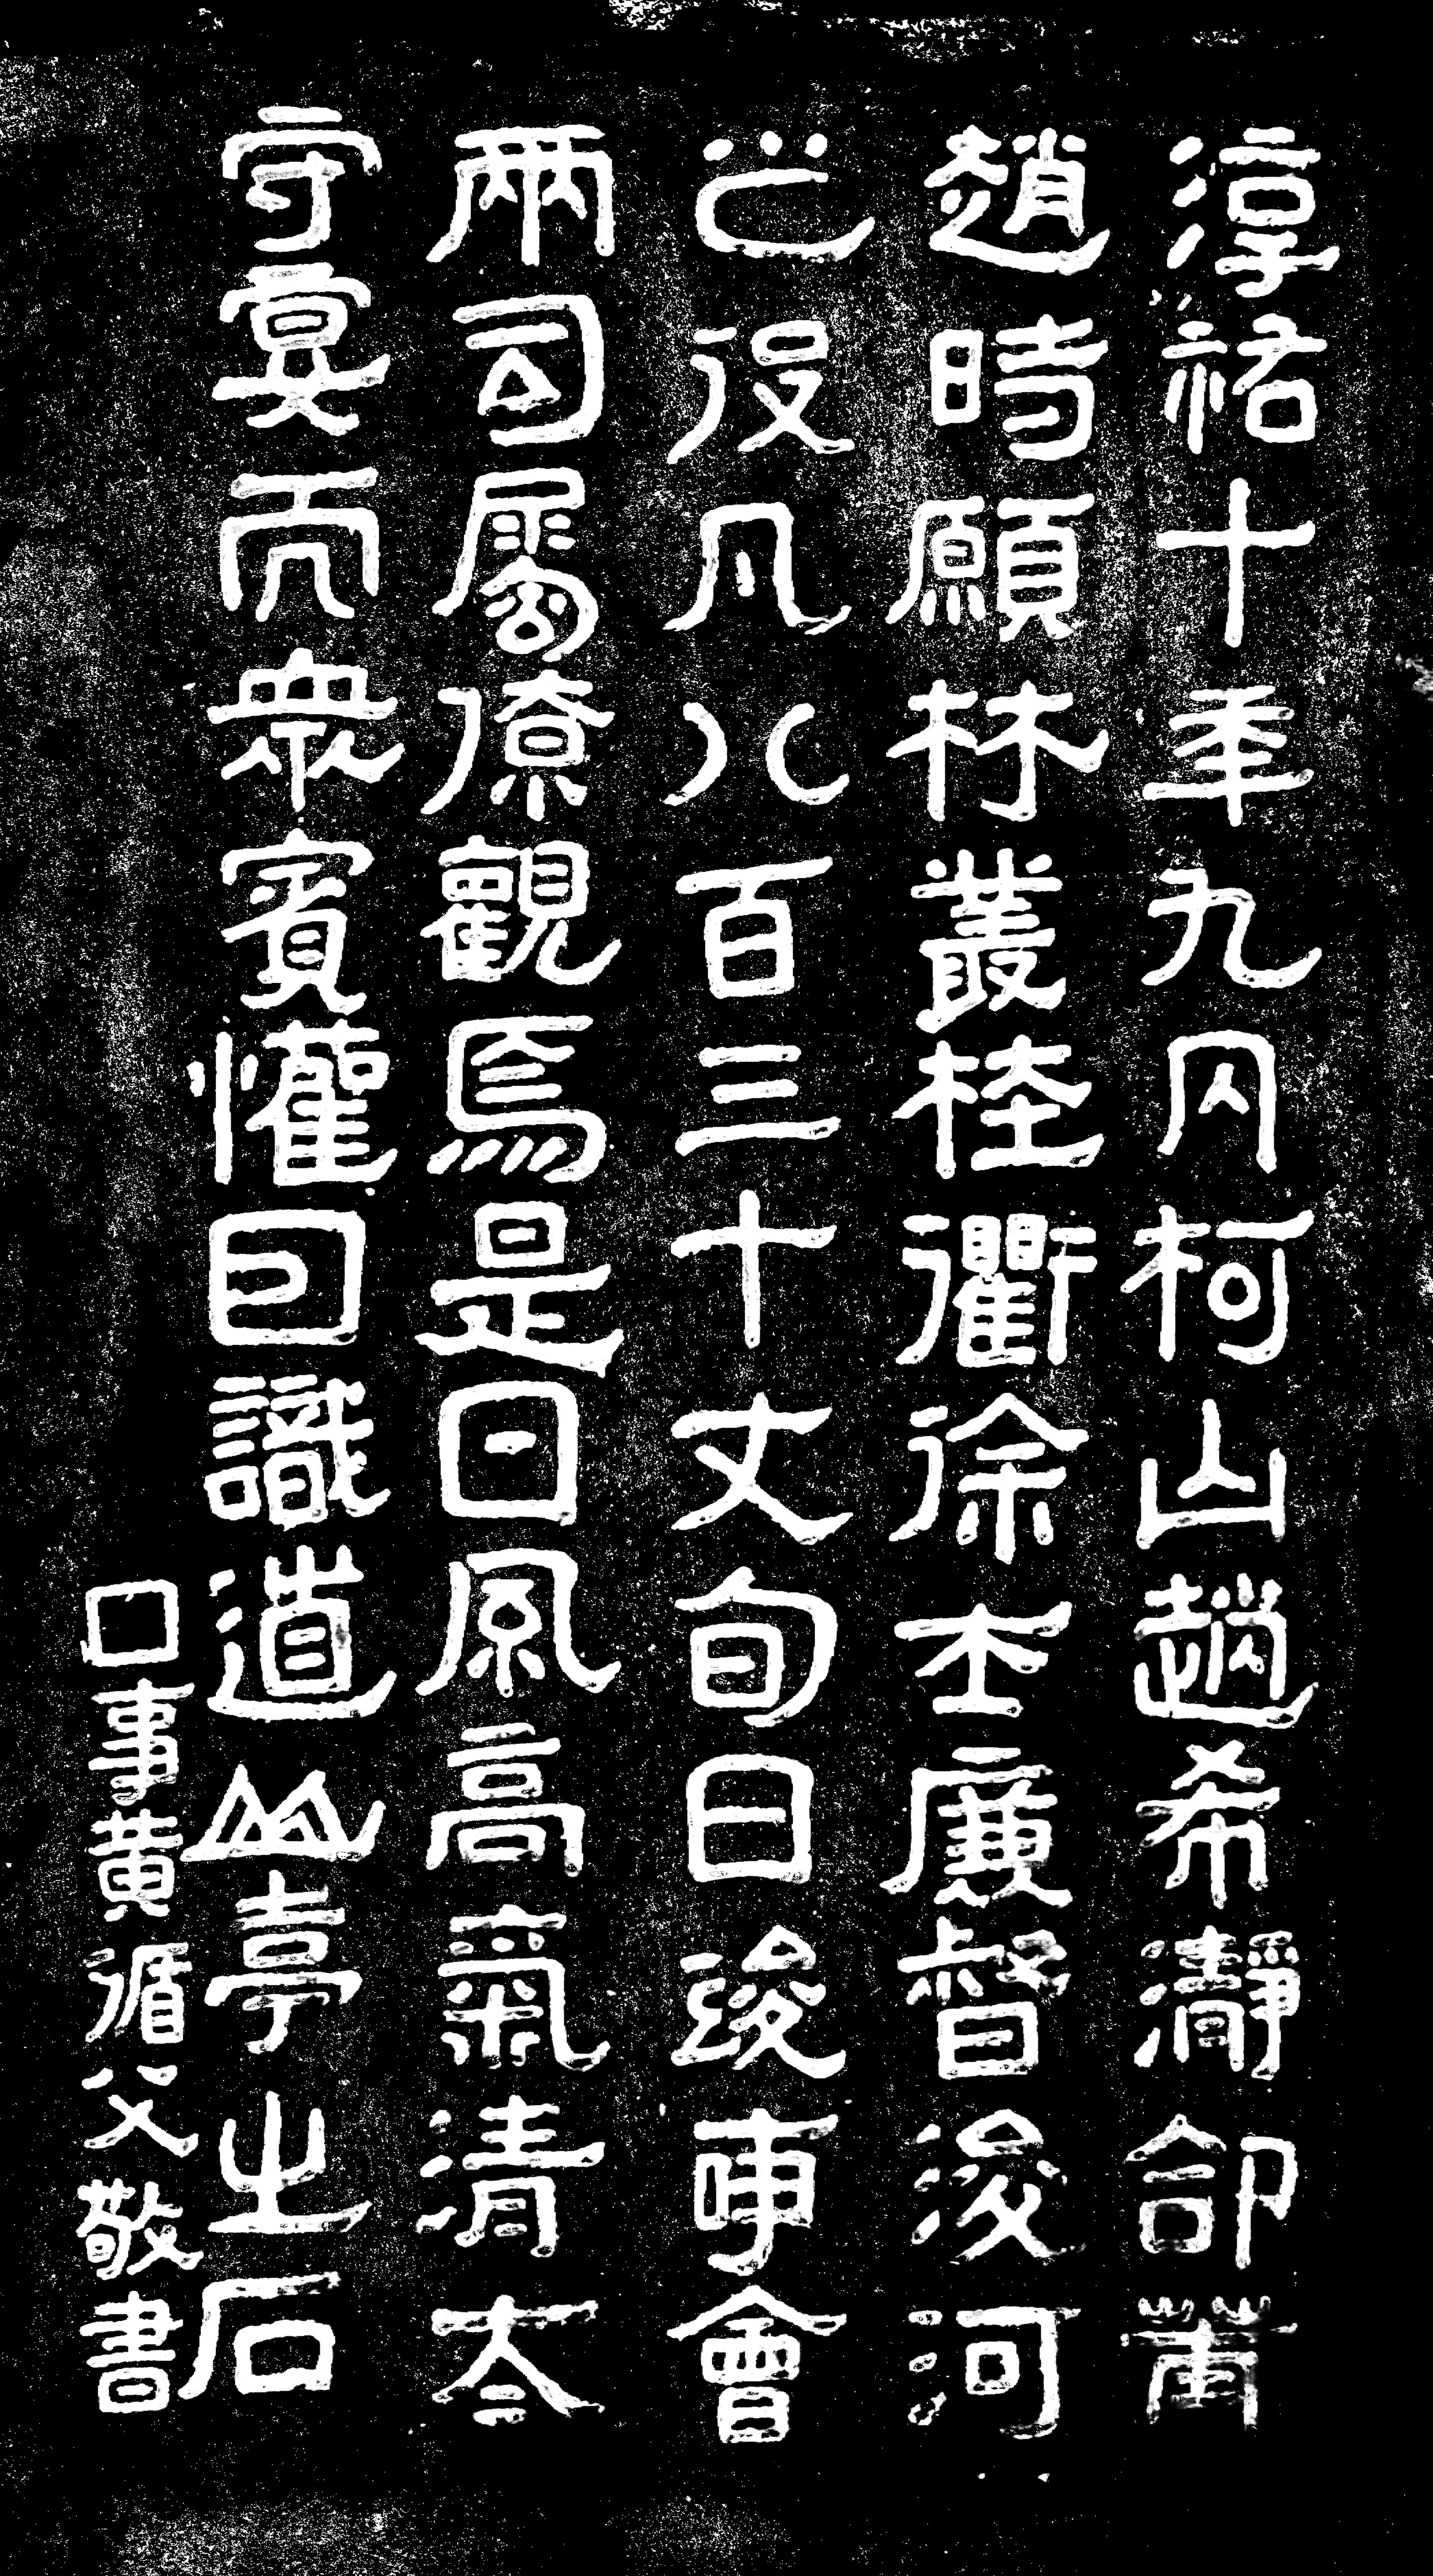 淳祐十年九月柯山趙希瀞命莆
趙時願林叢桂衢徐士廉督浚河
之役凡八百三十丈旬日竣事會
兩司屬僚觀焉是日風高氣清太
守宴而衆賓懽囙識道山亭之石
口事黃循父敬書